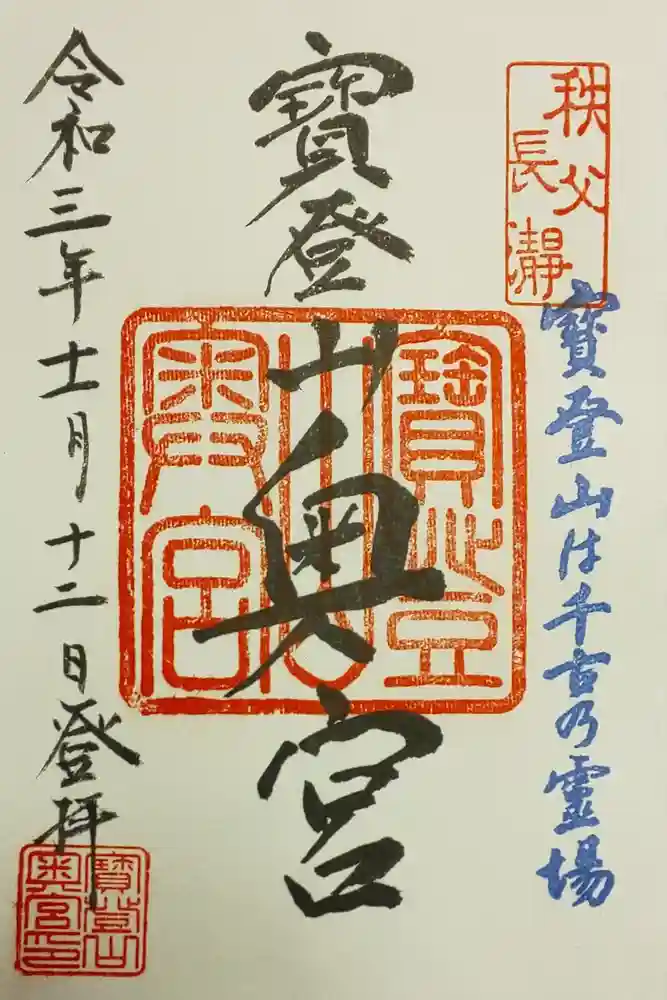 秩父
長瀞
寶登山は千古乃霊場
寶登山奥宮
寶登
山
奥宮
令和三年十一月十二日登拝
寶登山
奥宮印